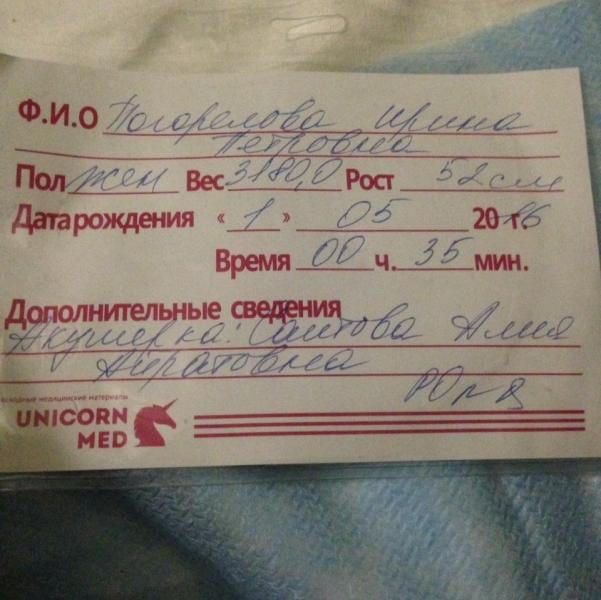 Ф.И.О Погорелова Ирина
Петровна
Пол жен Вес 3180,0 Рост 52 см
Дата рождения « 1 » 05 2016 г.
Время 00 ч. 35 мин.
Дополнительные сведения
Акушерка: Саитова Алия
Айратовна
расходные медицинские материалы
UNICORN
MED